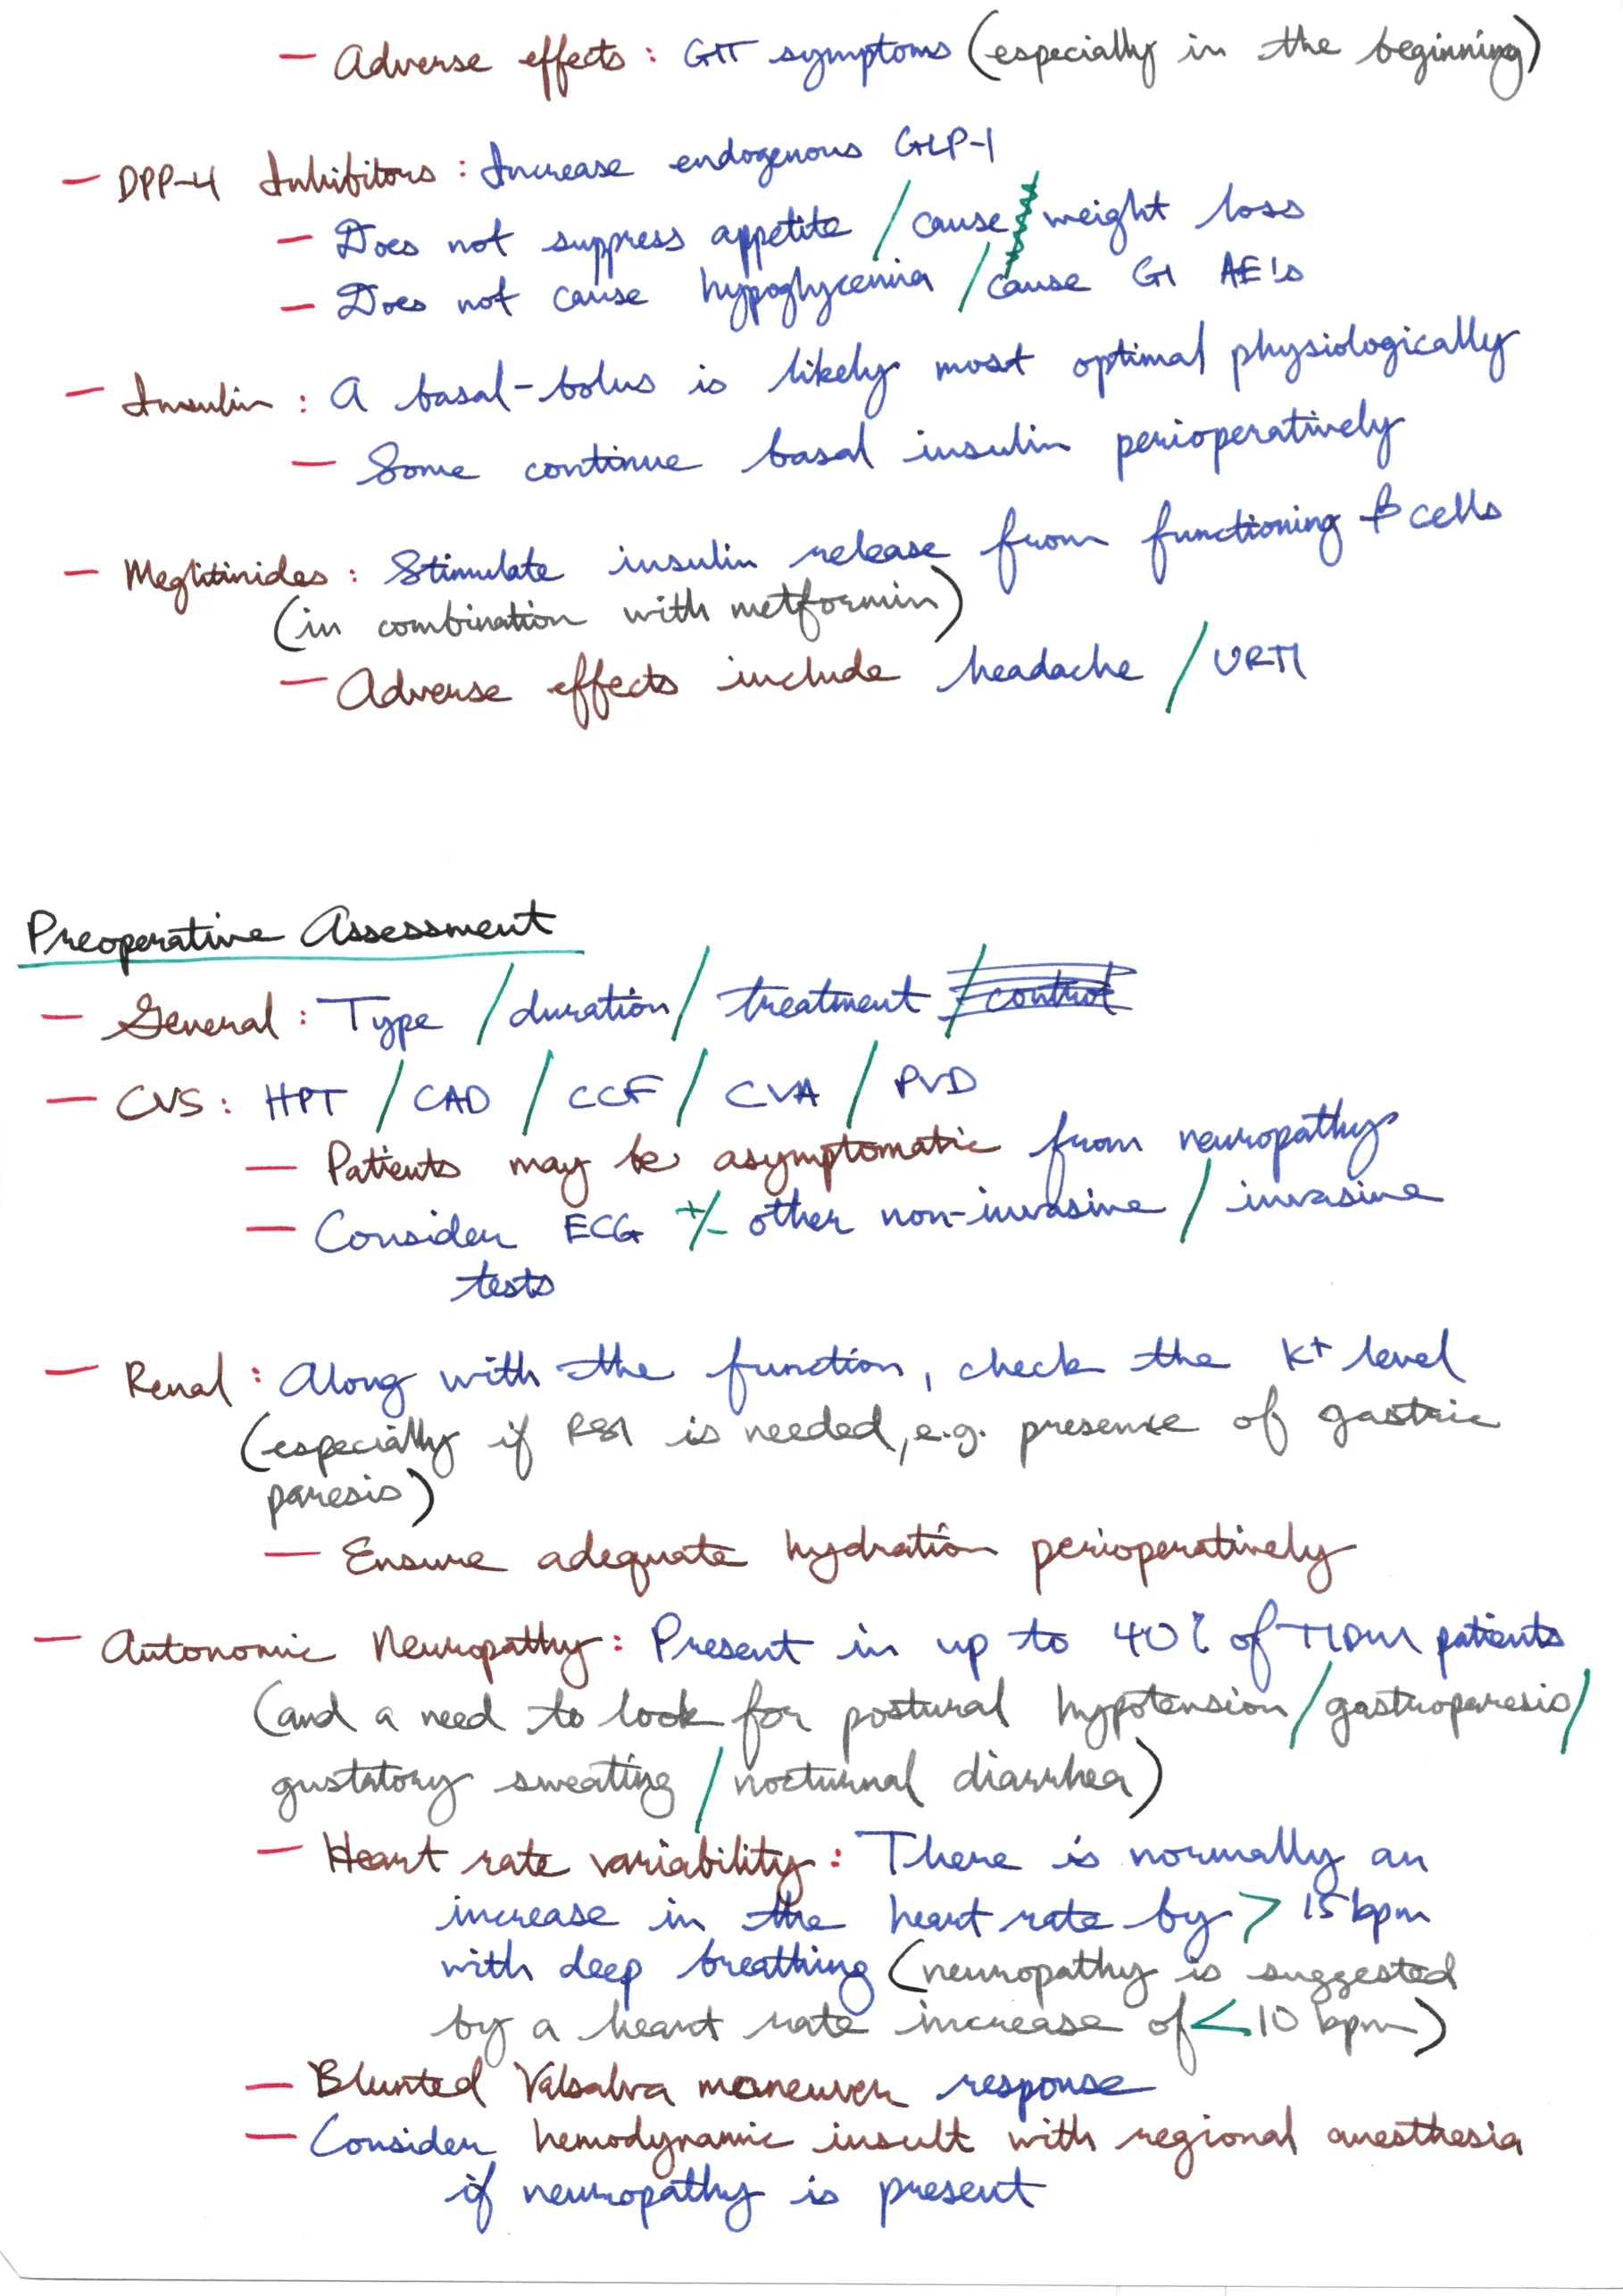 - Adverse effects: GIT symptoms (especially in the beginning)
- DPP-4 Inhibitors: Increase endogenous GLP-1
- Does not suppress appetite / cause weight loss
- Does not cause hypoglycemia / cause GI AE's
- Insulin: A basal-bolus is likely most optimal physiologically
- Some continue basal insulin perioperatively
- Meglitinides: Stimulate insulin release from functioning β cells
(in combination with metformin)
- Adverse effects include headache / URTI
Preoperative Assessment
- General: Type / duration / treatment / control
- CVS: HPT / CAD / CCF / CVA / PVD
- Patients may be asymptomatic from neuropathy
- Consider ECG +/- other non-invasive / invasive
tests
- Renal: Along with the function, check the K+ level
(especially if RSI is needed, e.g. presence of gastric
paresis)
- Ensure adequate hydration perioperatively
- Autonomic Neuropathy: Present in up to 40% of T1DM patients
(and a need to look for postural hypotension / gastroparesis /
gustatory sweating / nocturnal diarrhea)
- Heart rate variability: There is normally an
increase in the heart rate by > 15 bpm
with deep breathing (neuropathy is suggested
by a heart rate increase of < 10 bpm)
- Blunted Valsalva maneuver response
- Consider hemodynamic insult with regional anesthesia
if neuropathy is present